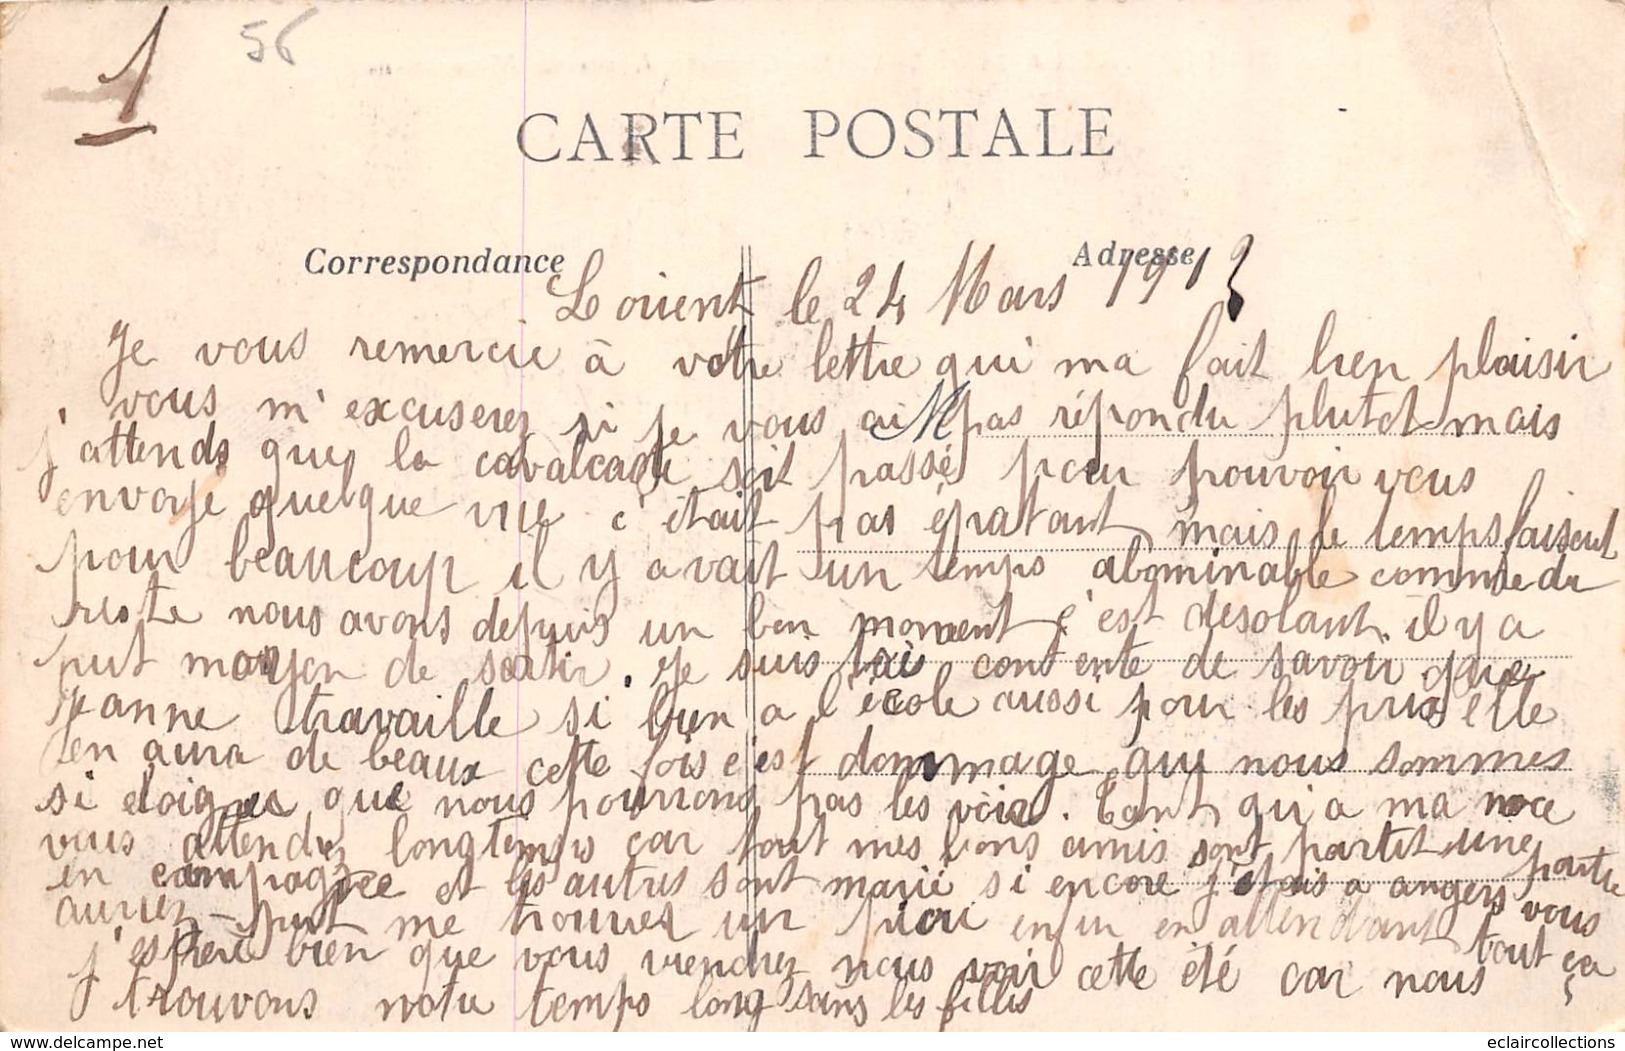 1
56
CARTE POSTALE
Correspondance
Adresse
Lorient le 24 Mars 1912
Je vous remercie à votre lettre qui ma fait bien plaisir
vous m'excuserez si je vous ai pas répondu plutot mais
j'attends que la cavalcade soit passé pour pouvoir vous
envoyé quelque vue c'était pas épatant mais le temps faisait
pour beaucoup il y avait un temps abominable comme du
reste nous avons depuis un bon moment c'est désolant il y a
put moyen de sortir. Je suis très contente de savoir que
Jeanne travaille si bien a l'école aussi pour les prix elle
en aura de beaux cette fois c'est dommage que nous sommes
si eloigner que nous pourrons pas les voir. Tant qu'a ma noce
vous attendrez longtemps car tout mes bons amis sont partit une partie
en campagne et les autres sont marié si encore j'étais a angers vous
auriez put me trouver un piou enfin en attendant tout ça
j'espère bien que vous viendrez nous voir cette été car nous
trouvons notre temps long sans les filles
eclaircollections
www.delcampe.net